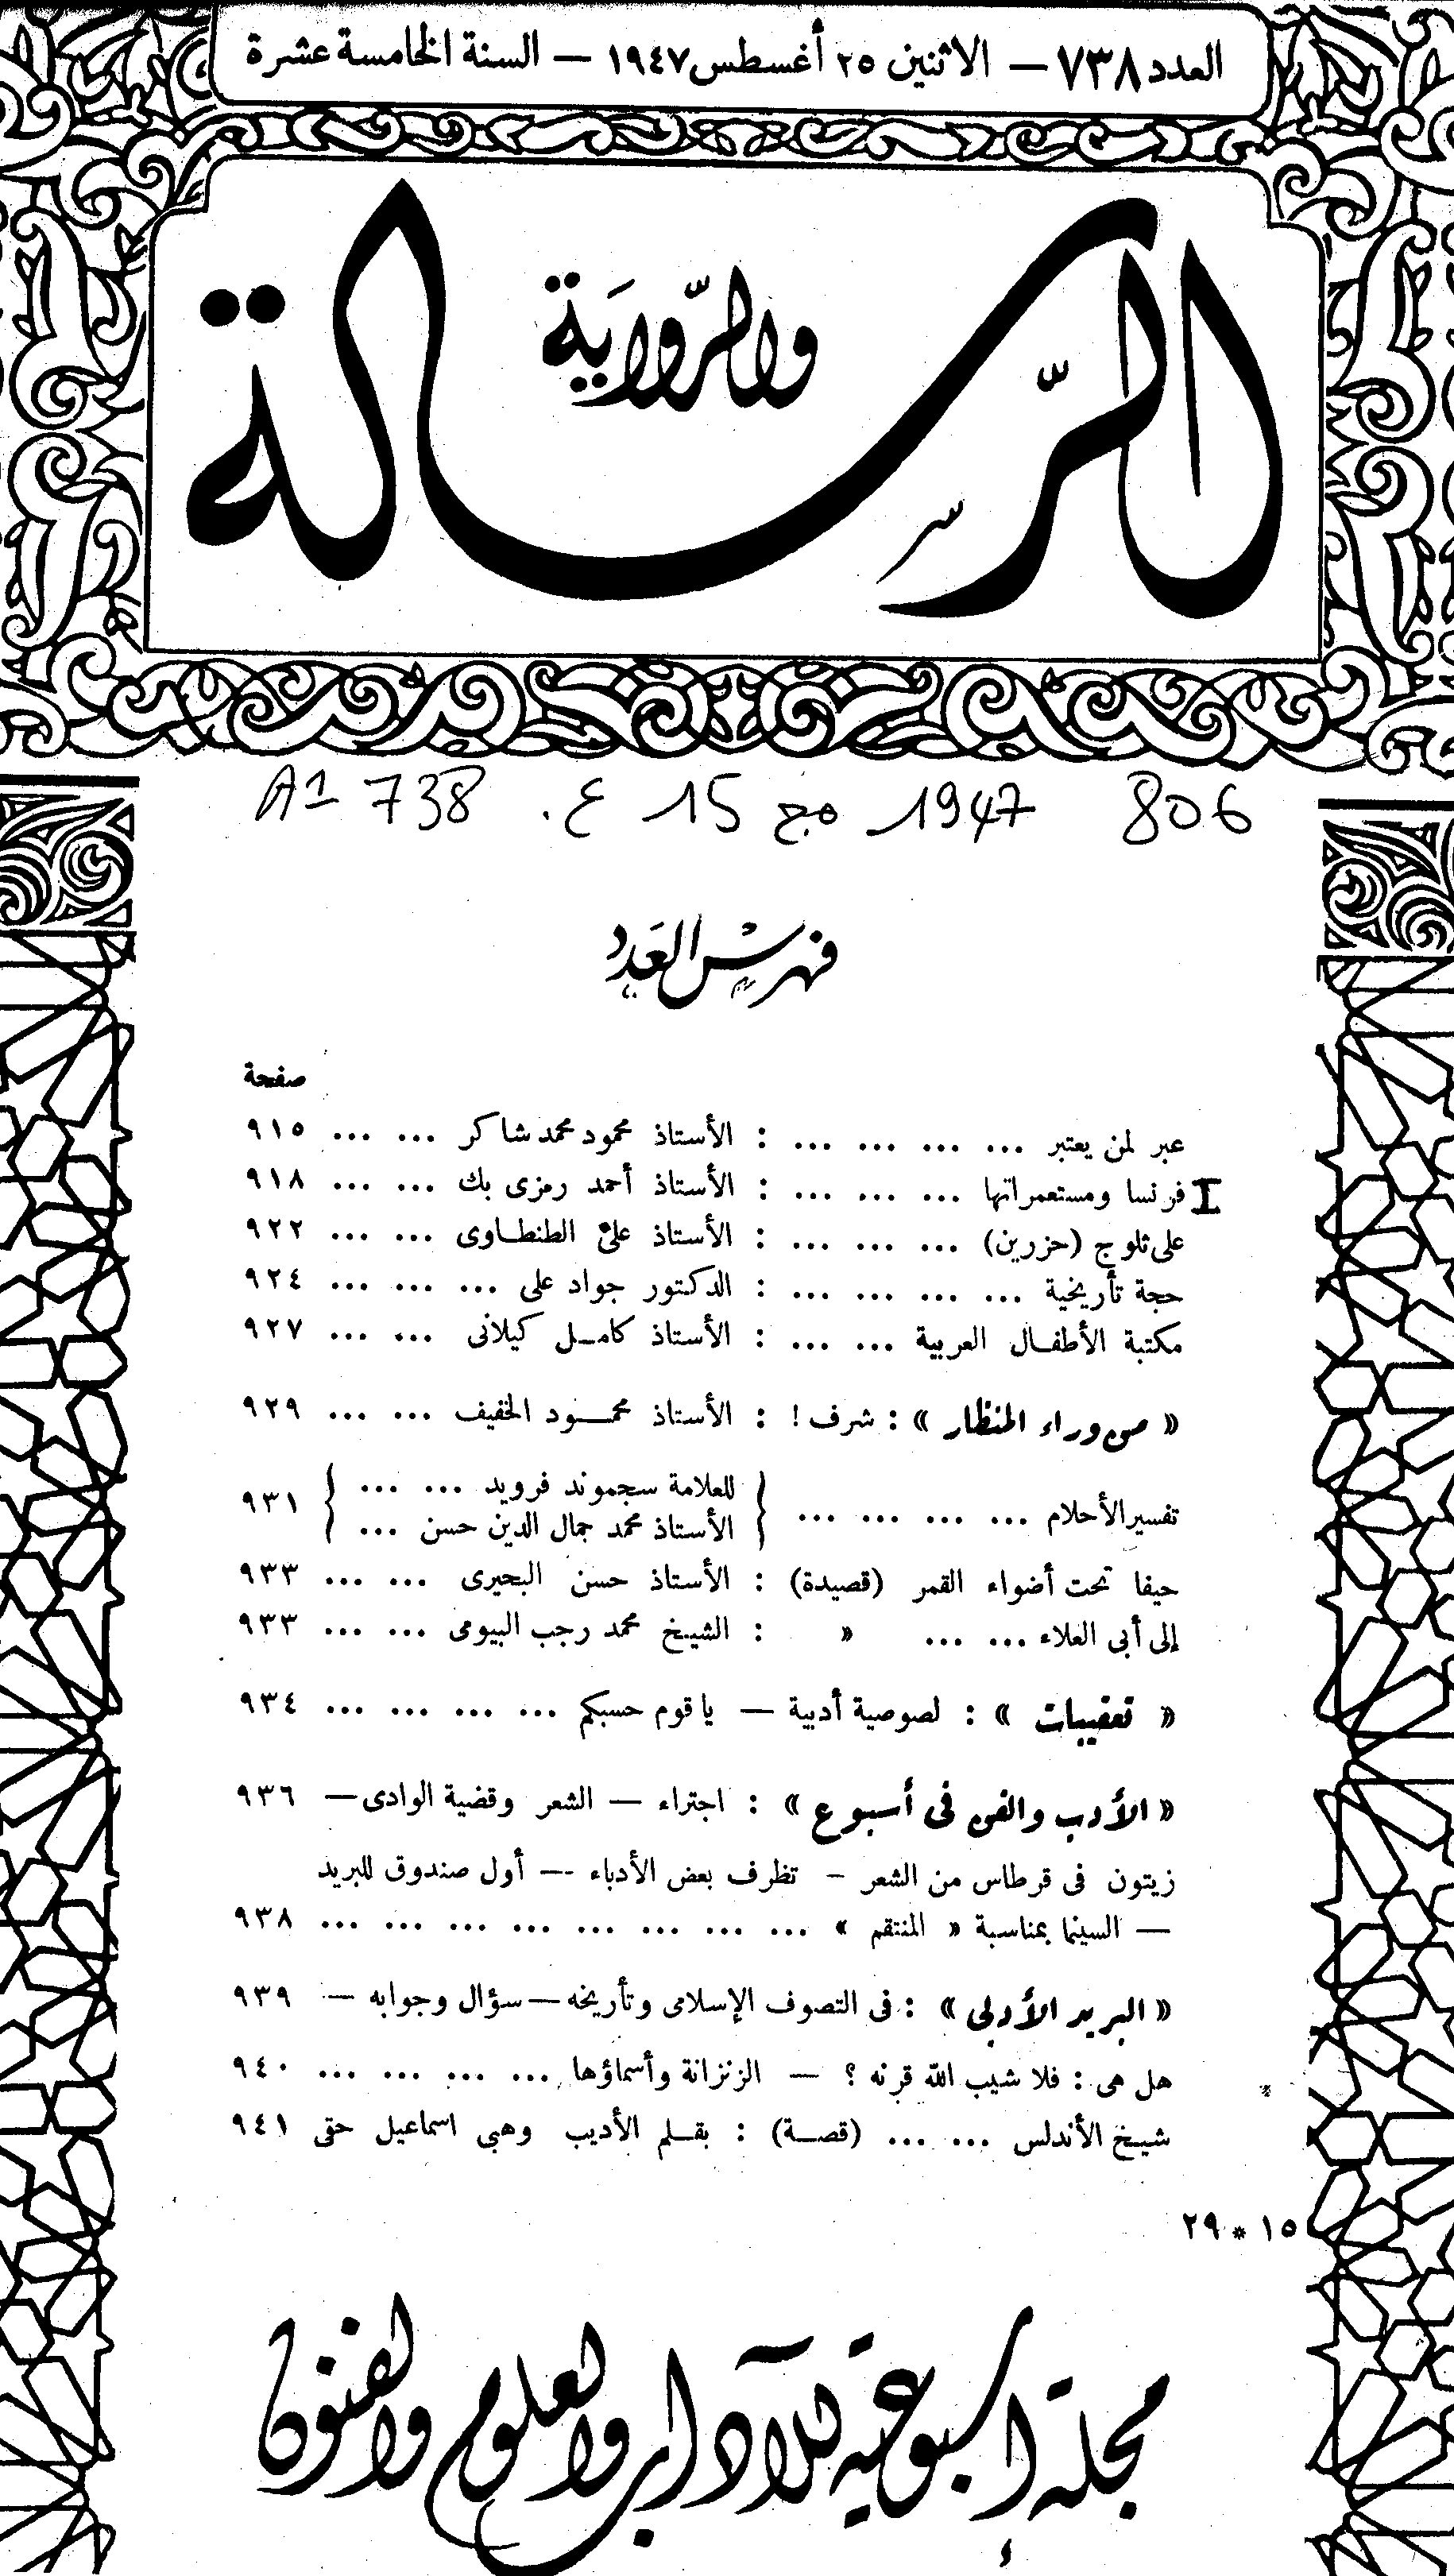 العدد ٧٣٨ — الاثنين ٢٥ أغسطس ١٩٤٧ — السنة الخامسة عشرة
الرسالة
والرواية
A1 738 ع. 15 مج 1947 806
فهرس العدد
صفحة
عبر لمن يعتبر ... ... ... ... : الأستاذ محمود محمد شاكر ... ... ٩١٥
I فرنسا ومستعمراتها ... ... ... : الأستاذ أحمد رمزى بك ... ... ٩١٨
على ثلوج (حزرين) ... ... ... : الأستاذ على الطنطاوى ... ... ٩٢٢
حجة تأريخية ... ... ... ... : الدكتور جواد على ... ... ... ٩٢٤
مكتبة الأطفال العربية ... ... : الأستاذ كامل كيلانى ... ... ٩٢٧
« من وراء المنظار » : شرف ! : الأستاذ محمود الخفيف ... ... ٩٢٩
تفسير الأحلام ... ... ... ... { للعلامة سجموند فرويد ... ... } ٩٣١
الأستاذ محمد جمال الدين حسن ...
حيفا تحت أضواء القمر (قصيدة) : الأستاذ حسن البحيرى ... ... ٩٣٣
إلى أبى العلاء ... ... » : الشيخ محمد رجب البيومى ... ... ٩٣٣
« تعقيبات » : لصوصية أدبية — يا قوم حسبكم ... ... ... ... ٩٣٤
« الأدب والفن فى أسبوع » : اجتراء — الشعر وقضية الوادى — ٩٣٦
زيتون فى قرطاس من الشعر — تظرف بعض الأدباء — أول صندوق للبريد
— السينما بمناسبة « المنتقم » ... ... ... ... ... ... ... ... ٩٣٨
« البريد الأدبى » : فى التصوف الإسلامى وتأريخه — سؤال وجوابه — ٩٣٩
هل هى : فلا شيب الله قرنه ؟ — الزنزانة وأسماؤها ... ... ... ... ٩٤٠
شيخ الأندلس ... ... (قصة) : بقلم الأديب وهبى اسماعيل حقى ٩٤١
١٥ * ٢٩
مجلة أسبوعية للآداب والعلوم والفنون